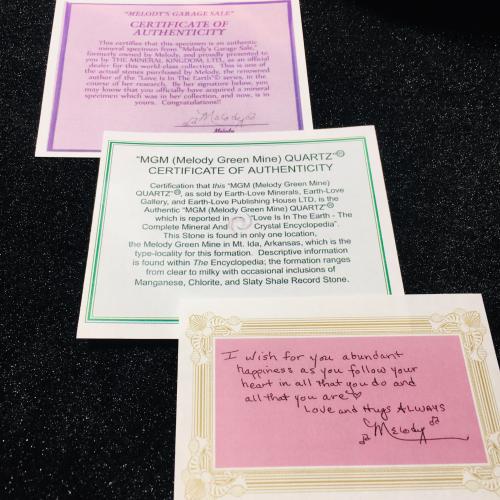 "MELODY'S GARAGE SALE"
CERTIFICATE OF
AUTHENTICITY
This certifies that this specimen is an authentic
mineral specimen from "Melody's Garage Sale,"
formerly owned by Melody, and proudly presented to
you by THE MINERAL KINGDOM, LTD., as an official
dealer for this world-class collection. This is one of
the actual stones purchased by Melody, the renowned
author of the "Love Is In The Earth"© series, in the
course of her research. By her signature below, you
may know that you officially have acquired a mineral
specimen which was in her collection, and now, is in
yours. Congratulations!!
Melody
Melody
"MGM (Melody Green Mine) QUARTZ"®
CERTIFICATE OF AUTHENTICITY
Certification that this "MGM (Melody Green Mine)
QUARTZ"®, as sold by Earth-Love Minerals, Earth-Love
Gallery, and Earth-Love Publishing House LTD, is the
Authentic "MGM (Melody Green Mine) QUARTZ"®
which is reported in "Love Is In The Earth - The
Complete Mineral And Crystal Encyclopedia".
This Stone is found in only one location,
the Melody Green Mine in Mt. Ida, Arkansas, which is the
type-locality for this formation. Descriptive information
is found within The Encyclopedia; the formation ranges
from clear to milky with occasional inclusions of
Manganese, Chlorite, and Slaty Shale Record Stone.
I wish for you abundant
happiness as you follow your
heart in all that you do and
all that you are♡
Love and Hugs ALWAYS
♫Melody♫